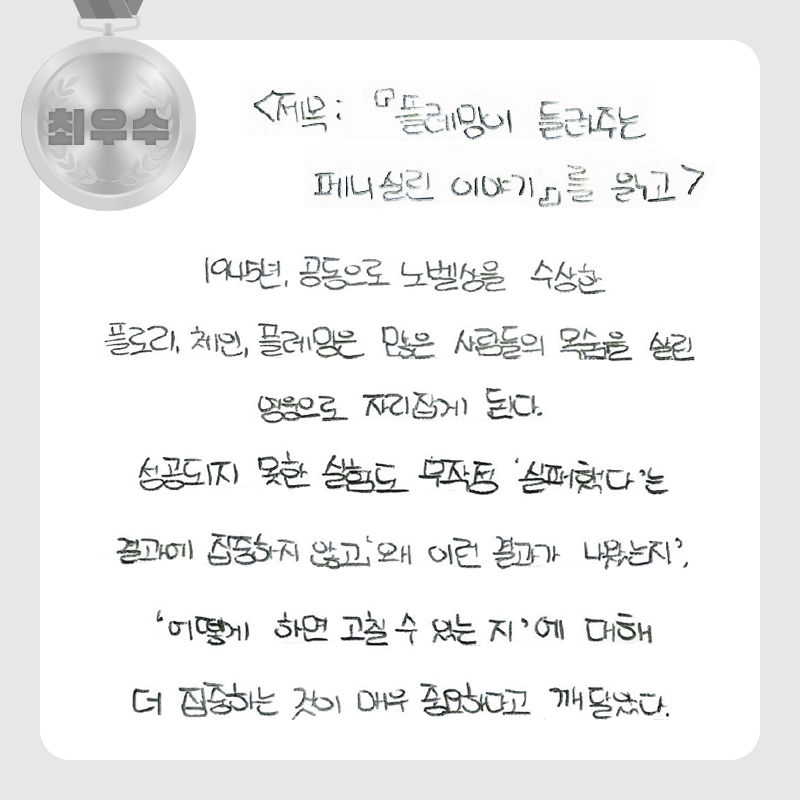 최우수
<제목: 『플레밍이 들려주는
페니실린 이야기』를 읽고>
1945년, 공동으로 노벨상을 수상한
플로리, 체인, 플레밍은 많은 사람들의 목숨을 살린
영웅으로 자리잡게 된다.
성공되지 못한 실험도 무작정 '실패했다'는
결과에 집중하지 않고, '왜 이런 결과가 나왔는지',
'어떻게 하면 고칠 수 있는 지'에 대해
더 집중하는 것이 매우 중요하다고 깨달았다.